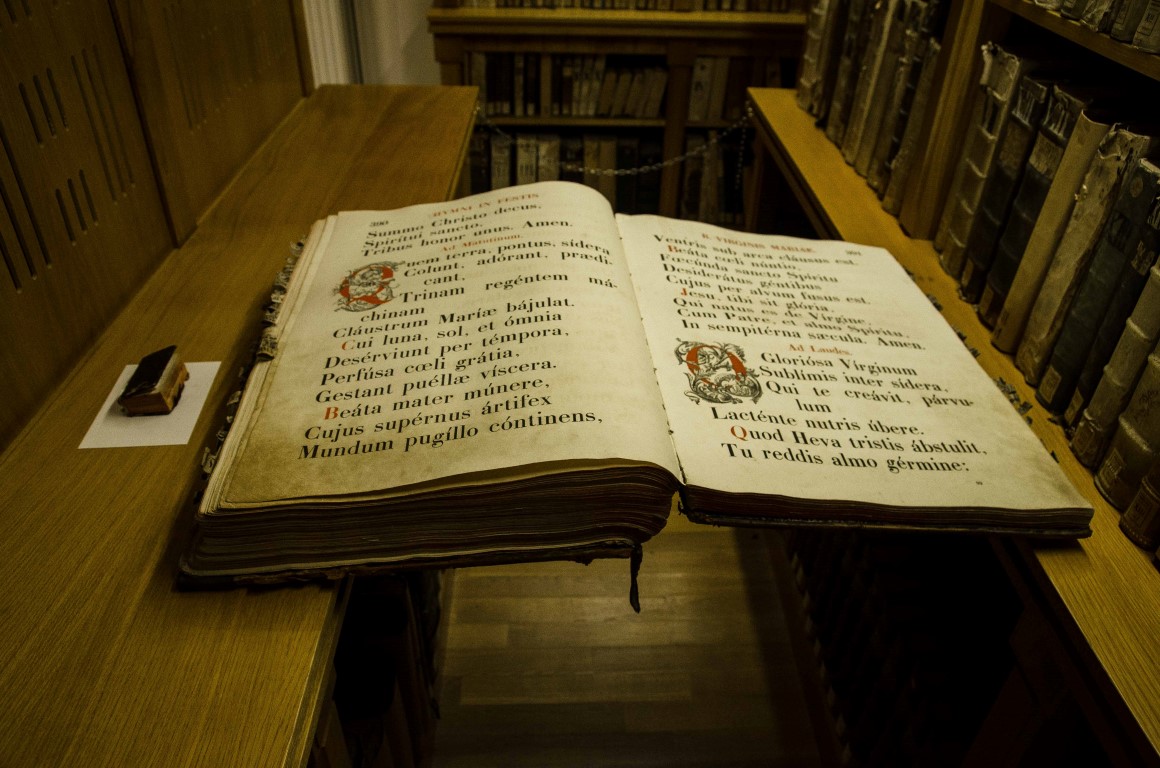 390
HYMNI IN FESTIS
Summo Christo decus,
Spirítui sancto,
Tribus honor unus. Amen.
Ad Matutinum.
Quem terra, pontus, sídera
Colunt, adórant, prædi-
cant,
Trinam regéntem má-
chinam
Cláustrum Maríæ bájulat.
Cui luna, sol, et ómnia
Desérviunt per témpora,
Perfúsa cœli grátia,
Gestant puéllæ víscera.
Beáta mater múnere,
Cujus supérnus ártifex
Mundum pugíllo cóntinens,
B. VIRGINIS MARIÆ.
391
Ventris sub arca cláusus est.
Beáta cœli núntio,
Fœcúnda sancto Spíritu
Desiderátus géntibus
Cujus per alvum fusus est.
Jesu, tibi sit glória,
Qui natus es de Vírgine,
Cum Patre, et almo Spíritu,
In sempitérna sæcula. Amen.
Ad Laudes.
O Gloriósa Vírginum
Sublímis inter sídera,
Qui te creávit, párvu-
lum
Lacténte nutris úbere.
Quod Heva tristis ábstulit,
Tu reddis almo gérmine: